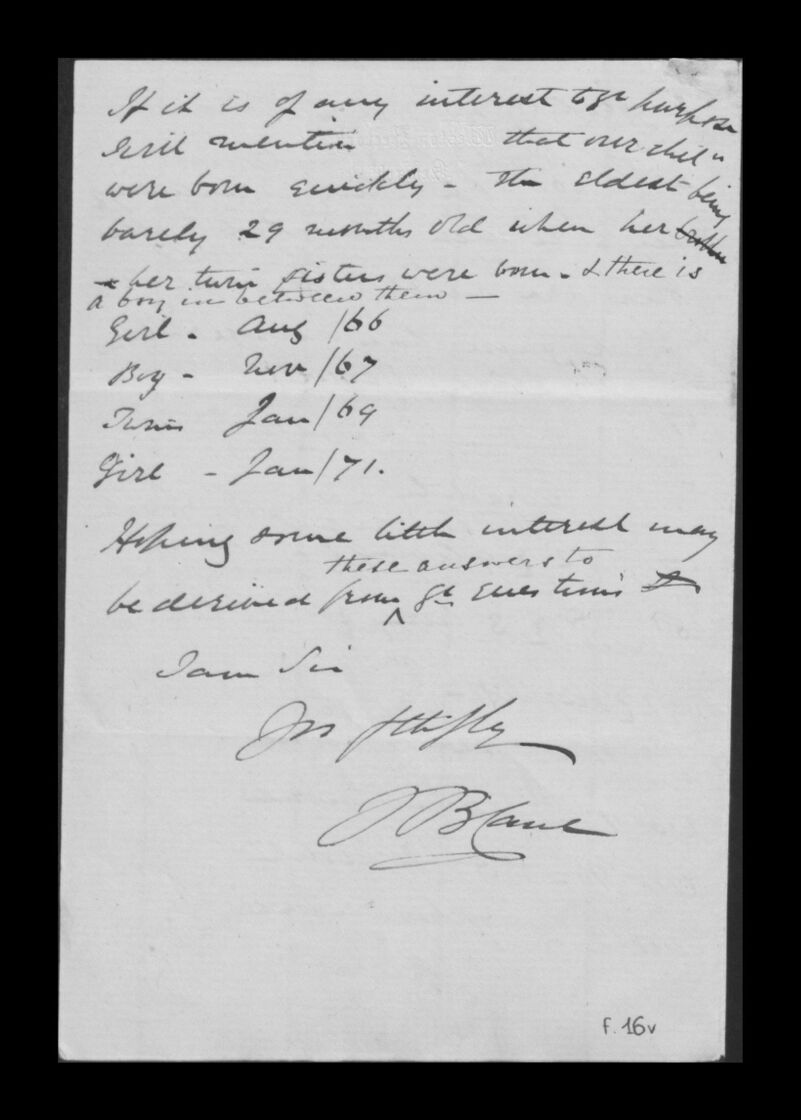 If it is of any interest to yr purpose
I will mention that our chiln
were born quickly - the eldest being
barely 29 months old when her brother
- her twin sisters were born - & there is
a boy in between them -
Girl - Aug /66
Boy - Nov /67
Twins Jan /69
Girl - Jan /71.
Hoping some little interest may
these answers to
be derived from ^ yr questions
I am Sir
Yrs fthfly
J Blane
F. 16v